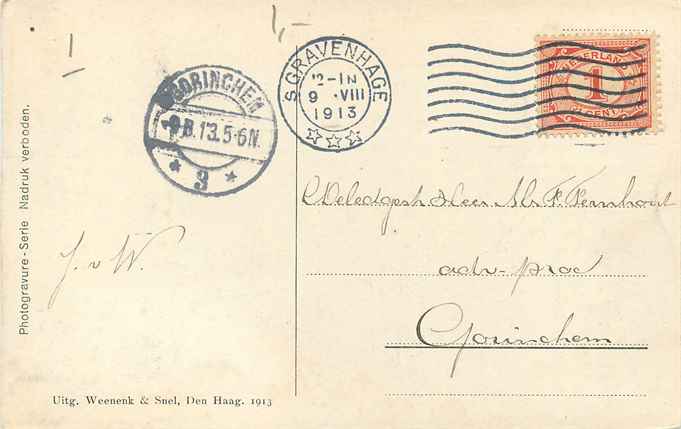 1,-
1
GORINCHEM
9.8.13.5-6N.
3
'SGRAVENHAGE
12-1N
9 .VIII
1913
NEDERLAND
1
CENT
Photogravure-Serie Nadruk verboden.
WEdelgestr Heer Mr F. Pernhout
adv-proc
Gorinchem
J. v W.
Uitg. Weenenk & Snel, Den Haag. 1913